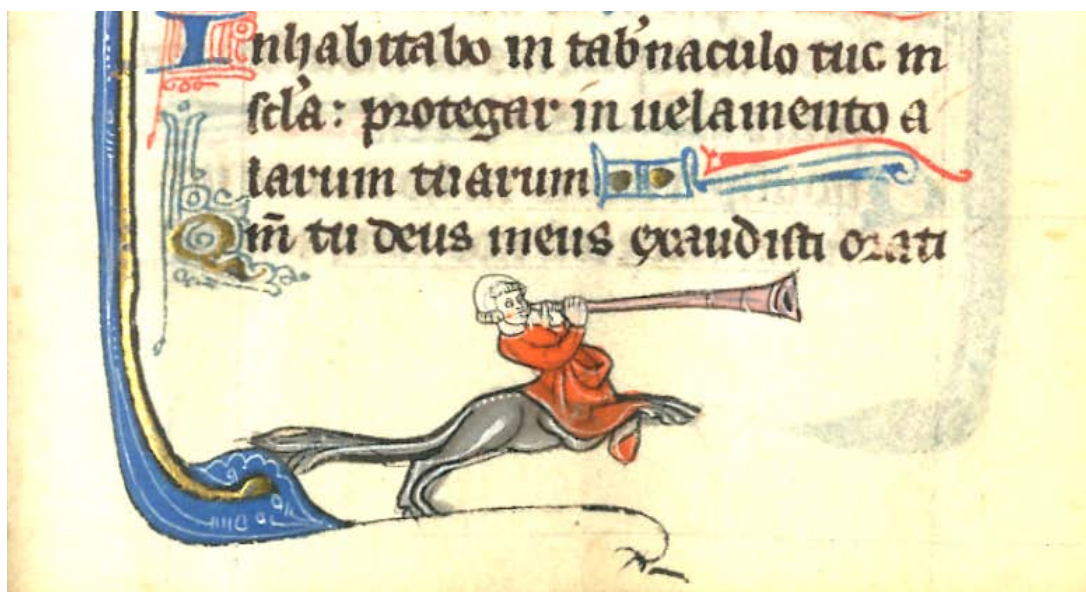 Inhabitabo in tab'naculo tuo in
scl'a: protegar in uelamento a
larum tuarum
Qm̅ tu deus meus exaudisti orati